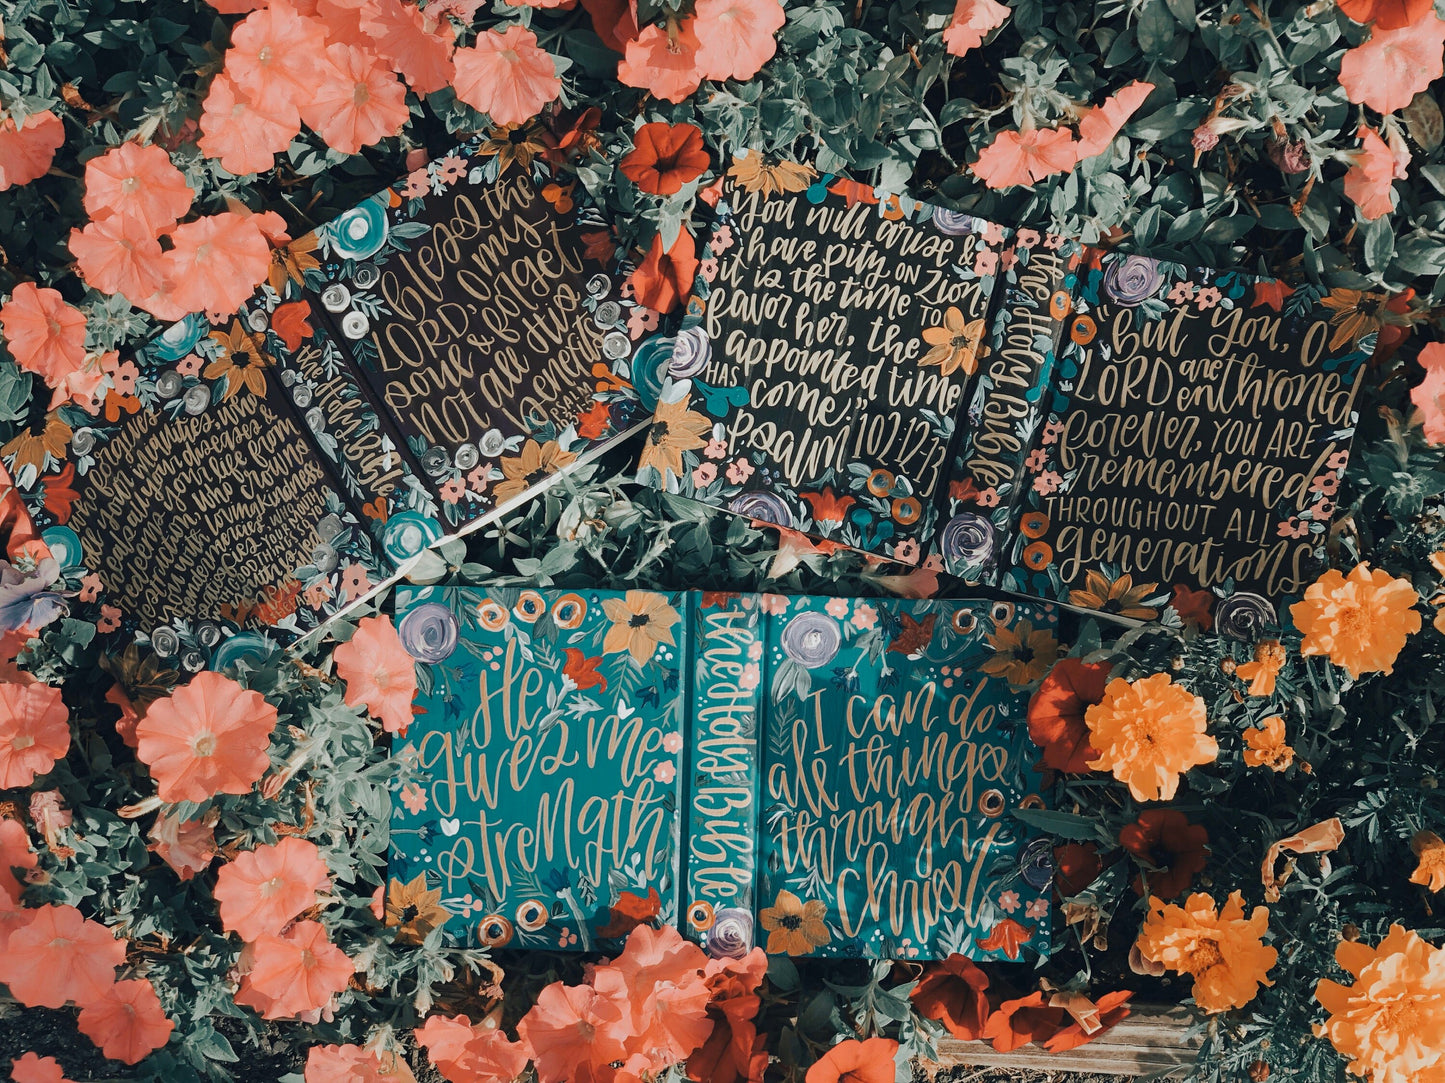 Bless the
LORD, O my
soul & forget
Not all His
benefits
PSALM
the Holy Bible
who forgives
all your iniquities, who
heals all your diseases &
redeems your life from
destruction, who crowns
you with lovingkindness
& tender mercies who
satisfies YOUR MOUTH
WITH GOOD THINGS SO YOUR
youth is renewed
"You will arise &
have pity ON Zion;
it is the time TO
favor her, the
appointed time
HAS come."
Psalm 102:12-13
the Holy Bible
"But You, O
LORD are enthroned
forever, YOU ARE
remembered
THROUGHOUT ALL
generations."
He
gives me
strength
the Holy Bible
I can do
all things
through
Christ